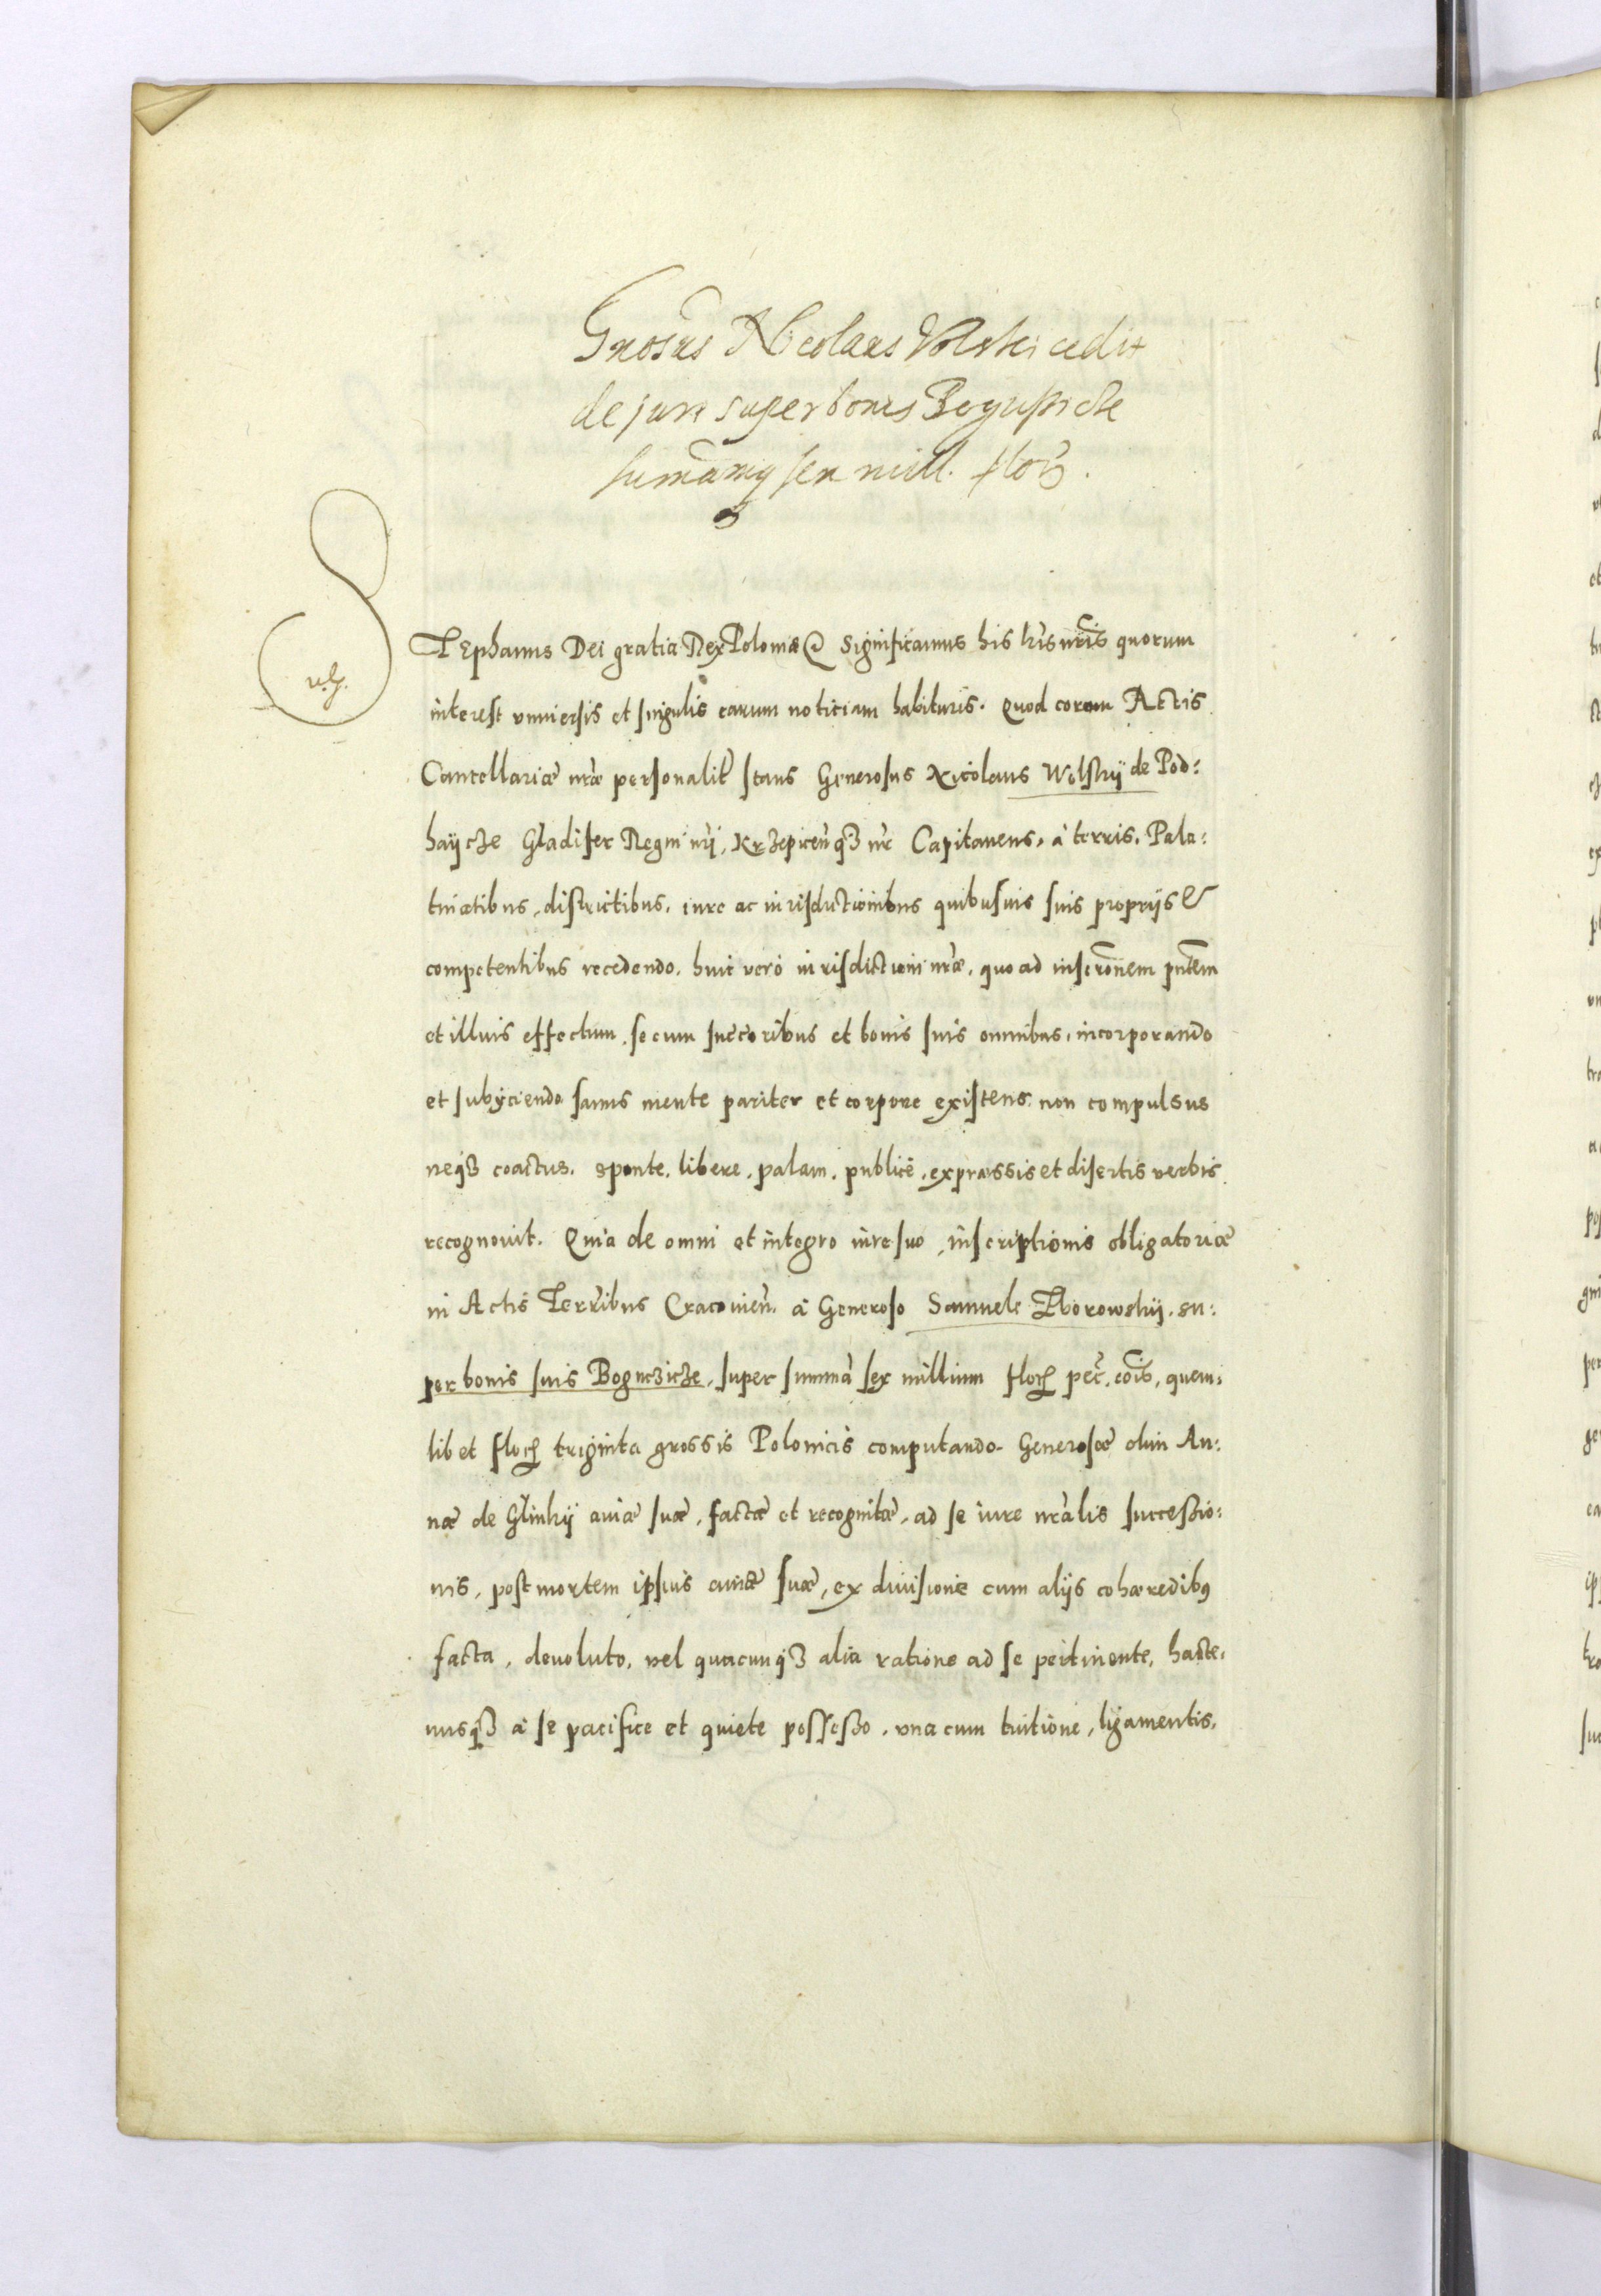 Gnosus Nicolaus Volski cedit
de jure super bonis Bogussicze
sumamq sex mill. flor.
STEphanus Dei gratia Rex Poloniæ &c Significamus his lris nris quorum
interest vniuersis et singulis earum noticiam habituris. Quod coram Actis
Cancellariæ nræ personalit stans Generosus Nicolaus Wolskij de Pod:
haijcze Gladifer Regni nri, Krzepicen qз nr Capitaneus, à terris, Pala:
tinatibus, districtibus, iure ac iurisductionibus quibusuis suis proprijs &
competentibus recedendo, huic verò iurisdictioni nræ, quo ad inscronem pntem
et illius effectum, se cum succoribus et bonis suis omnibus, incorporando
et subijciendo sanus mente pariter et corpore existens, non compulsus
neqз coactus, sponte, libere, palam, publicè, expræssis et disertis verbis
recognouit. Quia de omni et integro iure suo, inscriptionis obligatoriæ
in Actis Terribus Cracouien. à Generoso Samuele Zborowskij, su:
per bonis suis Boguczicze, super summà sex millium floꝝ pec. cois, quem:
libet floꝝ triginta grossis Polonicis computando. Generosæ olim An:
næ de Glinkij auiæ suæ, factæ et recognitæ, ad se iure nralis successio:
nis, post mortem ipsius auiæ suæ, ex diuisione cum alijs cohæredibꝰ
facta, deuoluto, vel quacunqз alia ratione ad se pertinente, hacte:
nusqз à se pacifice et quiete possesso, vna cum tuitione, ligamentis,